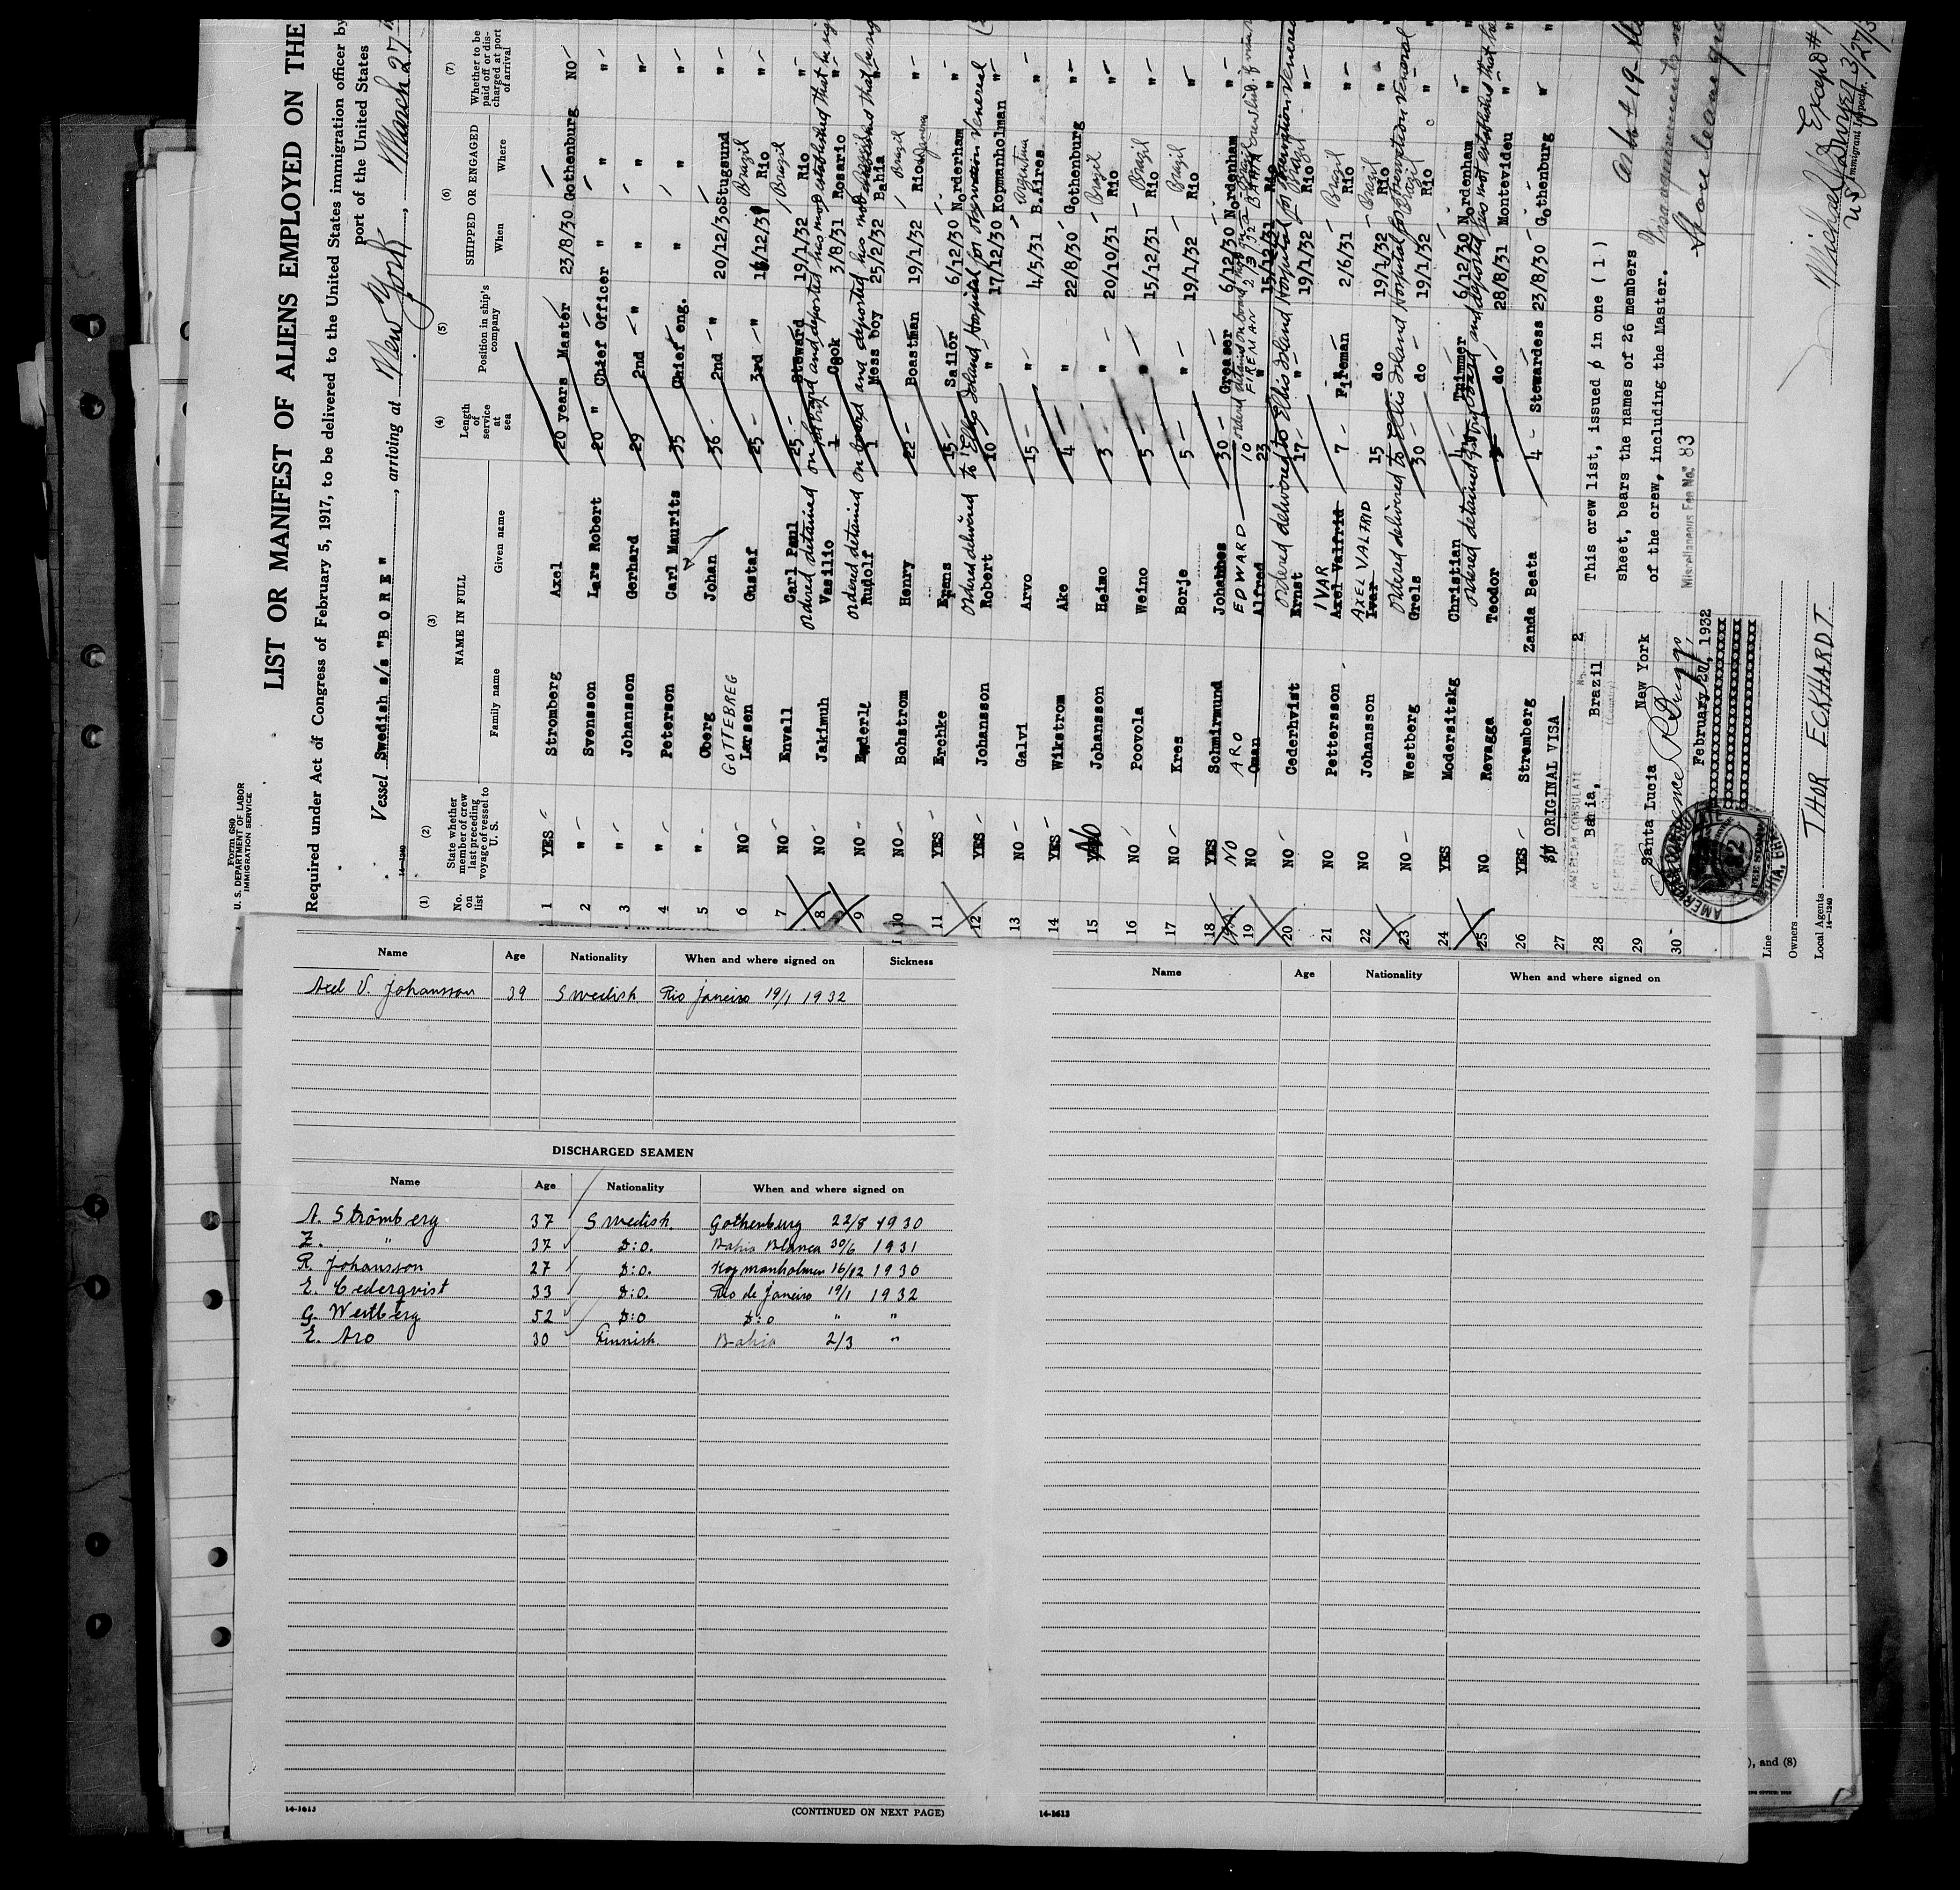 Form 680
U. S. DEPARTMENT OF LABOR
IMMIGRATION SERVICE
LIST OR MANIFEST OF ALIENS EMPLOYED ON THE
Required under Act of Congress of February 5, 1917, to be delivered to the United States immigration officer by
port of the United States
Vessel Swedish s/s "BORE", arriving at New York, March 27th
14-1240
(1) (2) (3) (4) (5) (6) (7)
No. on list State whether member of crew last preceding voyage of vessel to U. S. NAME IN FULL Family name Given name Length of service at sea Position in ship's company SHIPPED OR ENGAGED When Where Whether to be paid off or discharged at port of arrival
1 YES Stromberg Axel 20 years Master 23/8/30 Gothenburg NO
2 " Svensson Lars Robert 20 " Chief Officer " " "
3 " Johansson Gerhard 29 2nd " " " "
4 " Peterson Carl Maurits 35 Chief eng. " " "
5 " Oberg Johan 36 2nd " 20/12/30 Stugsund "
GOTTEBREG Brazil
6 NO Larsen Gustaf 25 3rd " 16/12/31 Rio "
Brazil
7 NO Envall Carl Paul 25 Steward 19/1/32 Rio "
Ordered detained on board and deported has not established that he
8 NO Jakimuh Vasilio 1 Cook 3/8/31 Rosario "
Ordered detained on board and deported has not established that he
9 NO Ederle Rudolf 1 Mess boy 25/2/32 Bahia "
Brazil
10 NO Bohstrom Henry 22 Boastman 19/1/32 Rio "
11 YES Erchke Frans 15 Sailor 6/12/30 Norderham "
Ordered delivered to Ellis Island Hospital for observation Venereal
12 YES Johansson Robert 10 " 17/12/30 Koymanholman "
Argentina
13 NO Galvi Arvo 15 " 4/5/31 B.Aires "
14 YES Wikstrom Ake 4 " 22/8/30 Gothenburg "
Brazil
15 No Johansson Heimo 3 " 20/10/31 Rio "
Brazil
16 NO Poovola Weino 5 " 15/12/31 Rio "
Brazil
17 NO Kres Borje 5 " 19/1/32 Rio "
18 YES Schmirmund Johannes 30 Greaser 6/12/30 Nordenham "
NO ARO EDWARD 10 FIREMAN 2/3/32 BAHIA
19 NO Oman Alfred 23 " 15/12/31 Rio "
Ordered delivered to Ellis Island Hospital for observation Venereal
20 NO Cederhvist Ernst 17 " 19/1/32 Rio "
IVAR Brazil
21 NO Pettersson Axel Valfrid 7 Fireman 2/6/31 Rio "
AXEL VALFRID Brazil
22 NO Johansson Ivar 15 do 19/1/32 Rio "
Ordered delivered to Ellis Island Hospital for observation Venereal
23 NO Westberg Grels 30 do 19/1/32 Rio "
24 YES Modersitskg Christian 4 Trimmer 6/12/30 Nordenham "
Ordered detained on board and deported has not established that he
25 NO Revagga Teodor do 28/8/31 Montevideu "
26 YES Stromberg Zanda Beata 4 Stewardess 23/8/30 Gothenburg "
27 ORIGINAL VISA
28 AMERICAN CONSULATE No. 2
Bahia, Brazil
29 Santa Lucia New York
30
February 20, 1932
AMERICAN CONSULATE
BAHIA, BRAZIL
FEE STAMP
This crew list, issued in one ( 1 )
sheet, bears the names of 26 members
of the crew, including the Master.
Miscellaneous Fee No. 83
Line
Owners
Local Agents THOR ECKHARDT
14-1240
Except #
3/27/3
Immigrant Inspector.
Name Age Nationality When and where signed on Sickness
Axel V. Johansson 39 Swedish Rio Janeiro 19/1 1932
DISCHARGED SEAMEN
Name Age Nationality When and where signed on
A. Strömberg 37 Swedish. Gothenburg 22/8 1930
Z. " 37 D:o. Bahia Blanca 30/6 1931
R. Johansson 27 D:o. Koymanholmen 16/12 1930
E. Cederqvist 33 D:o. Rio de Janeiro 19/1 1932
G. Westberg 52 D:o D:o " "
E. Aro 30 Finnish. Bahia 2/3 "
14-1613
(CONTINUED ON NEXT PAGE)
Name Age Nationality When and where signed on
14-1613
), and (8)